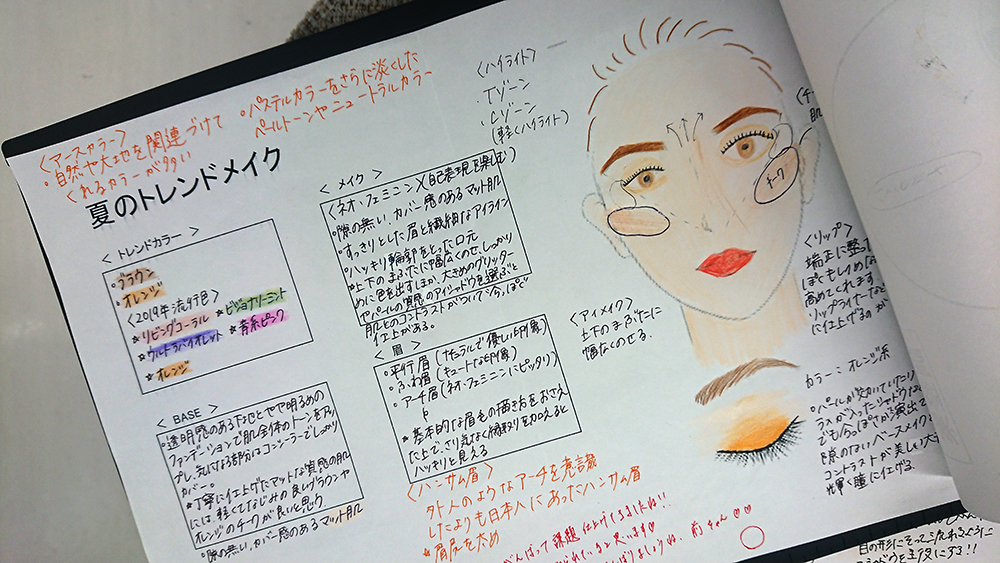 <アースカラー>
・自然や大地を関連づけて
くれるカラーが多い
・パステルカラーをさらに淡くした
ペールトーンやニュートラルカラー
夏のトレンドメイク
<トレンドカラー>
・ブラウン
・オレンジ
<2019年流行色>
★リビングコーラル ★ビジョナリーミント
★ウルトラバイオレット ★青系ピンク
★オレンジ
<BASE>
・透明感のあるなど やや明るめの
ファンデーションで肌全体のトーンをアッ
プし、気になる部分はコンシーラーでしっかり
カバー。
★丁寧に仕上げたマットな質感の肌
には、軽くてなじみの良いブラウンや
オレンジのチークが良いと思う
・隙の無い、カバー感のあるマット肌
<メイク>
<ネオ・フェミニン×自己表現を楽しむ>
・隙の無い、カバー感のあるマット肌
・すっきりとした眉と繊細なアイライン
・ハッキリ輪郭をとった口元
★上下のまぶたに幅広くのせ、しっかり
めに色を出すほか、大きめのグリッター
やパールの質感のアイシャドウを選ぶと
肌とのコントラストがついて今っぽく
仕上がる。
<眉>
・平行眉(ナチュラルで優しい印象)
・ふわ眉(キュートな印象)
・アーチ眉(ネオ・フェミニンにピッタリ)
★基本的な眉毛の描き方をおさえ
た上で、さり気なく縁取りを加えると
ハッキリと見える
<ハンサム眉>
外人のようなアーチを意識
したよりも日本人にあったハンサム眉
★眉尻を太め
<ハイライト>
・Tゾーン
・Lゾーン
(軽くハイライト)
チーク
<アイメイク>
上下のまぶたに
幅広くのせる。
<リップ>
端正に整っ
高めてくれます
リップライナーなど
に仕上げるが
カラー:オレンジ系
・パールが効いていたり
ラメが入ったシャドウなら
でも今っぽさが演出で
隙のないベースメイクと
コントラストが美しい大
輝く瞳に仕上げる
がんばって課題仕上げてきましたね!!
がんばりましょうね。前ちゃん♡♡
目の形にそって流れるように